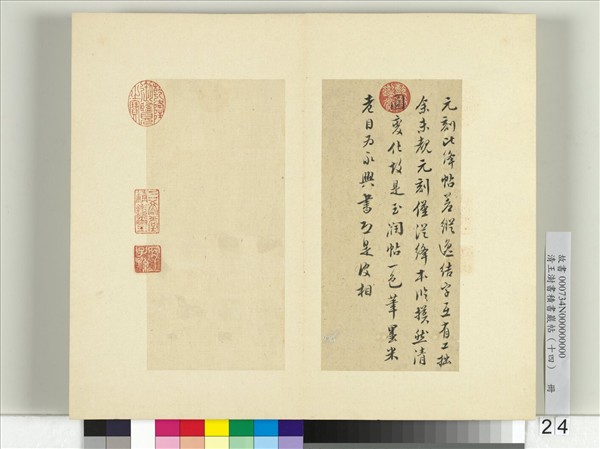 元刻比絳帖差縱逸結字互有工拙
余未覩元刻僅從絳本臨摸然清
圓變化故是玉潤帖一色筆墨米
老目為永興書正是皮相
故書 000734N000000000
清王澍書積書巖帖(十四) 冊
24